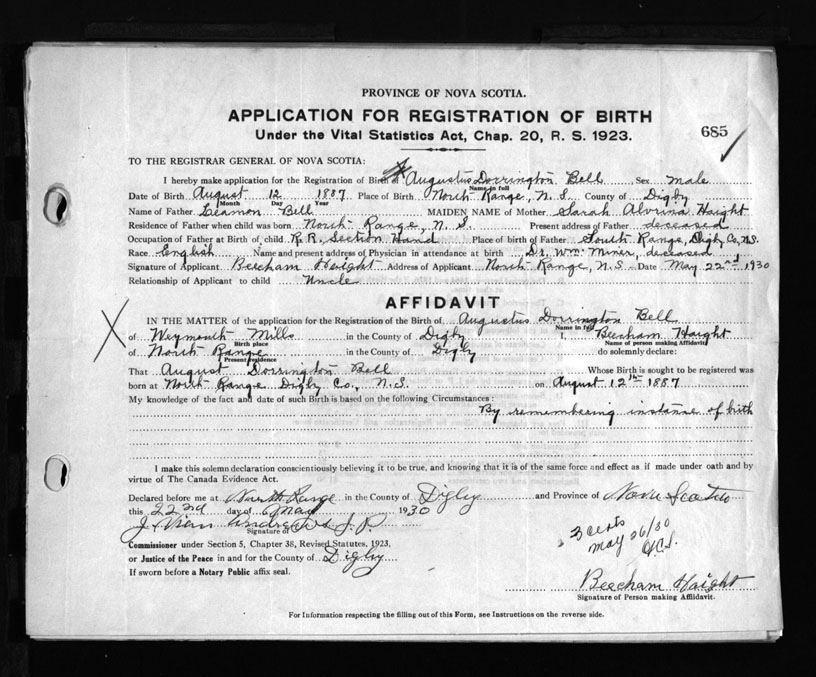 PROVINCE OF NOVA SCOTIA.
APPLICATION FOR REGISTRATION OF BIRTH
Under the Vital Statistics Act, Chap. 20, R. S. 1923.
685
TO THE REGISTRAR GENERAL OF NOVA SCOTIA:
I hereby make application for the Registration of Birth of Augustus Dorrington Bell Sex Male
Name in full
Date of Birth August 12 1887 Place of Birth North Range, N.S. County of Digby
Month Day Year
Name of Father Leamon Bell MAIDEN NAME of Mother Sarah Alvruna Haight
Residence of Father when child was born North Range, N.S. Present address of Father deceased
Occupation of Father at Birth of child R.R. Section Hand Place of birth of Father South Range, Digby Co, N.S.
Race English Name and present address of Physician in attendance at birth Dr. Wm. Miner, deceased
Signature of Applicant Beecham Haight Address of Applicant North Range, N.S. Date May 22nd 1930
Relationship of Applicant to child Uncle
AFFIDAVIT
IN THE MATTER of the application for the Registration of the Birth of Augustus Dorrington Bell
Name in full
of Weymouth Mills in the County of Digby I, Beecham Haight
Birth place Name of person making Affidavit
of North Range in the County of Digby do solemnly declare:
Present residence
That August Dorrington Bell Whose Birth is sought to be registered was
born at North Range Digby Co., N.S. on August 12th 1887
My knowledge of the fact and date of such Birth is based on the following Circumstances:
By remembering instance of birth
I make this solemn declaration conscientiously believing it to be true, and knowing that it is of the same force and effect as if made under oath and by
virtue of The Canada Evidence Act.
Declared before me at North Range in the County of Digby and Province of Nova Scotia
this 22nd day of May 1930
Andrews J.P.
Signature of
Commissioner under Section 5, Chapter 38, Revised Statutes, 1923,
or Justice of the Peace in and for the County of Digby
If sworn before a Notary Public affix seal.
3 certs
May 26/30
Beecham Haight
Signature of Person making Affidavit.
For Information respecting the filling out of this Form, see Instructions on the reverse side.